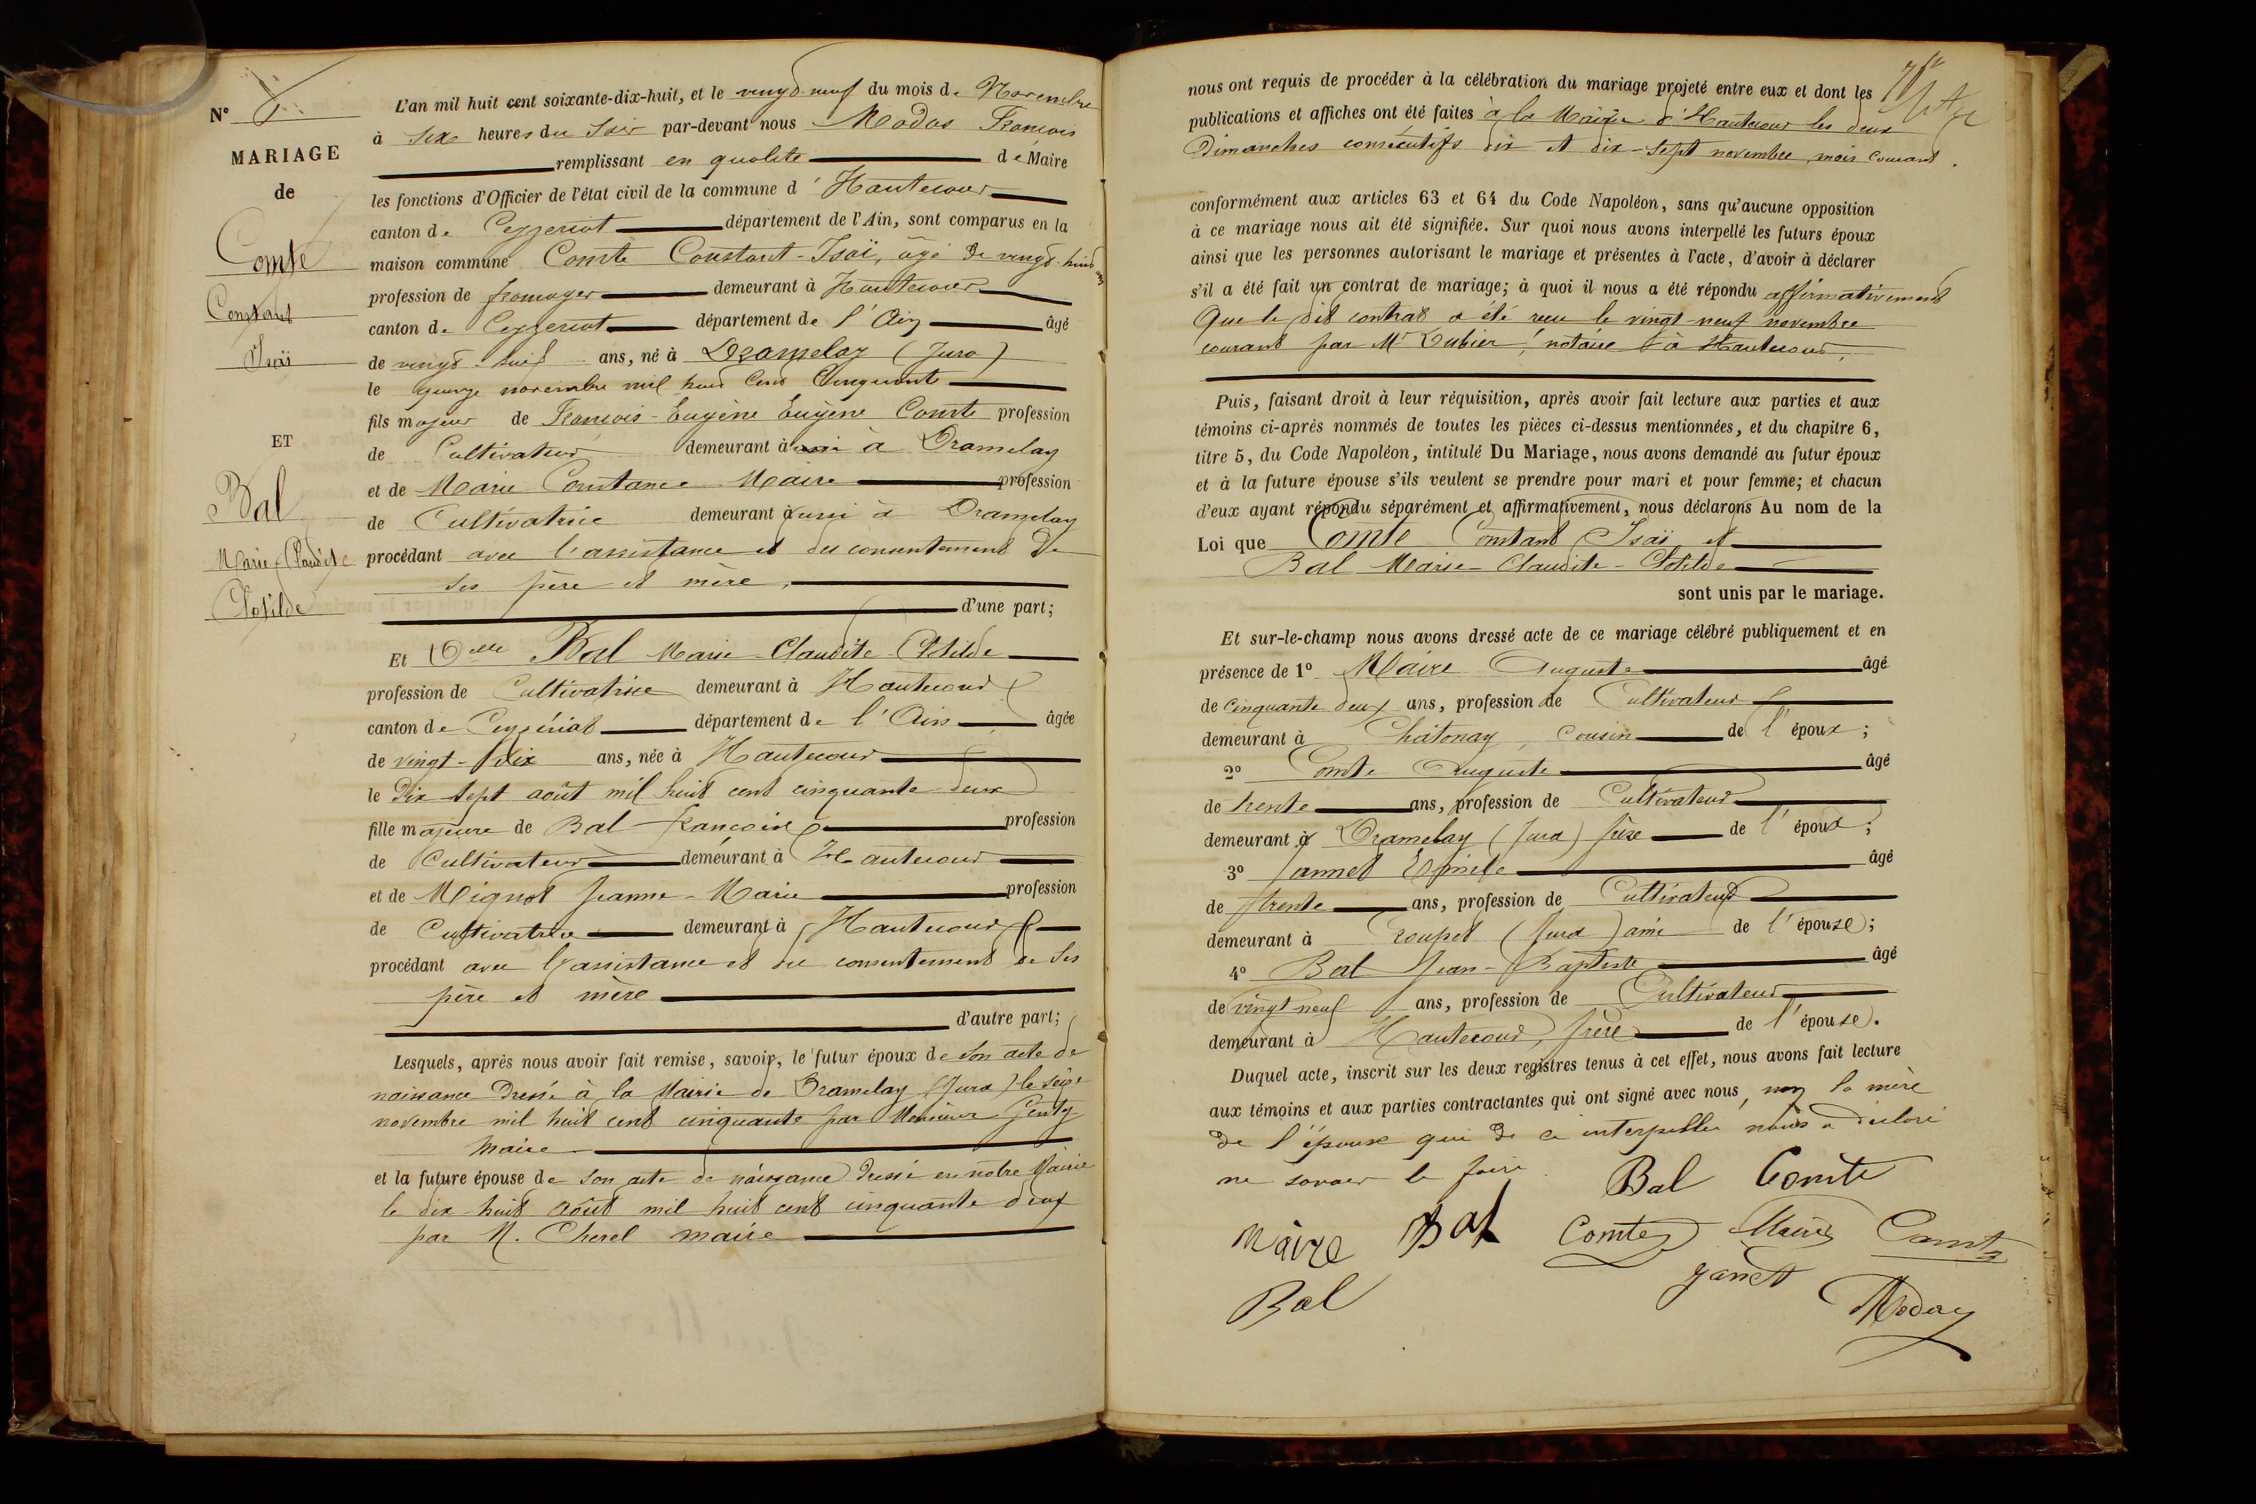 N°
MARIAGE
de
Comte
Constant
Isaï
ET
Bal
Marie-Claudite
Clotilde
L'an mil huit cent soixante-dix-huit, et le vingt-neuf du mois de Novembre
à six heures du soir par-devant nous Modas François
remplissant en qualité de Maire
les fonctions d'Officier de l'état civil de la commune d'Hautecour
canton de Ceyzeriat département de l'Ain, sont comparus en la
maison commune Comte Constant-Isaï, âgé de vingt-huit ans
profession de fromager demeurant à Hautecour
canton de Ceyzeriat département de l'Ain âgé
de vingt-huit ans, né à Dramelay (Jura)
le quinze novembre mil huit cent cinquante
fils majeur de François-Eugène Eugène Comte profession
de Cultivateur demeurant à à Dramelay
et de Marie Constance Maire profession
de Cultivatrice demeurant aussi à Dramelay
procédant avec l'assistance et du consentement de
ses père et mère,
d'une part;
Et Delle Bal Marie-Claudite-Clotilde
profession de Cultivatrice demeurant à Hautecour
canton de Ceyzériat département de l'Ain âgée
de vingt-six ans, née à Hautecour
le dix sept août mil huit cent cinquante deux
fille majeure de Bal François profession
de Cultivateur demeurant à Hautecour
et de Mignot Jeanne-Marie profession
de Cultivatrice demeurant à Hautecour
procédant avec l'assistance et du consentement de ses
père et mère
d'autre part;
Lesquels, après nous avoir fait remise, savoir, le futur époux de son acte de
naissance dressé à la Mairie de Dramelay (Jura) le seize
novembre mil huit cent cinquante par Monsieur Genty
Maire
et la future épouse de son acte de naissance dressé en notre Mairie
le dix huit août mil huit cent cinquante deux
par M. Cherel maire
nous ont requis de procéder à la célébration du mariage projeté entre eux et dont les
publications et affiches ont été faites à la Mairie d'Hautecour les deux
Dimanches consécutifs dix et dix-sept novembre, mois courant.
conformément aux articles 63 et 64 du Code Napoléon, sans qu'aucune opposition
à ce mariage nous ait été signifiée. Sur quoi nous avons interpellé les futurs époux
ainsi que les personnes autorisant le mariage et présentes à l'acte, d'avoir à déclarer
s'il a été fait un contrat de mariage; à quoi il nous a été répondu affirmativement
Que le dit contrat a été reçu le vingt-neuf novembre
courant par Mr Dubier, notaire à Hautecour,
Puis, faisant droit à leur réquisition, après avoir fait lecture aux parties et aux
témoins ci-après nommés de toutes les pièces ci-dessus mentionnées, et du chapitre 6,
titre 5, du Code Napoléon, intitulé Du Mariage, nous avons demandé au futur époux
et à la future épouse s'ils veulent se prendre pour mari et pour femme; et chacun
d'eux ayant répondu séparément et affirmativement, nous déclarons Au nom de la
Loi que Comte Constant Isaï et
Bal Marie-Claudite-Clotilde
sont unis par le mariage.
Et sur-le-champ nous avons dressé acte de ce mariage célébré publiquement et en
présence de 1° Maire Auguste âgé
de cinquante deux ans, profession de Cultivateur
demeurant à Chatonay, cousin de l'époux;
2° Comte Auguste âgé
de trente ans, profession de Cultivateur
demeurant à Dramelay (Jura) frère de l'époux;
3° Jannet Emile âgé
de trente ans, profession de Cultivateur
demeurant à (Jura) ami de l'épouse;
4° Bal Jean-Baptiste âgé
de vingt neuf ans, profession de Cultivateur
demeurant à Hautecour, frère de l'épouse.
Duquel acte, inscrit sur les deux registres tenus à cet effet, nous avons fait lecture
aux témoins et aux parties contractantes qui ont signé avec nous, non la mère
de l'épouse qui de ce interpellée nous a déclaré
ne savoir le faire
Bal Comte
Maire Bal Comte Maire Comte
Janet
Bal Moday